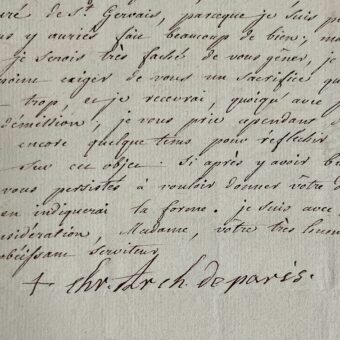 uré de St. Gervais, parceque je suis p
us y auriés fait beaucoup de bien; ma
je serois très faché de vous gêner, je
même exiger de vous un sacrifice qu
trop, et je recevrai, quoiqu'avec p
démission, je vous prie cependant d
encore quelque tems pour réflechir
sur cet objet. Si après y avoir b
vous persistés à vouloir donner vôtre d
en indiquerai la forme. je suis avec
nsidération, Madame, votre très hum
obéissant serviteur
+ Chr. Arch. de paris.